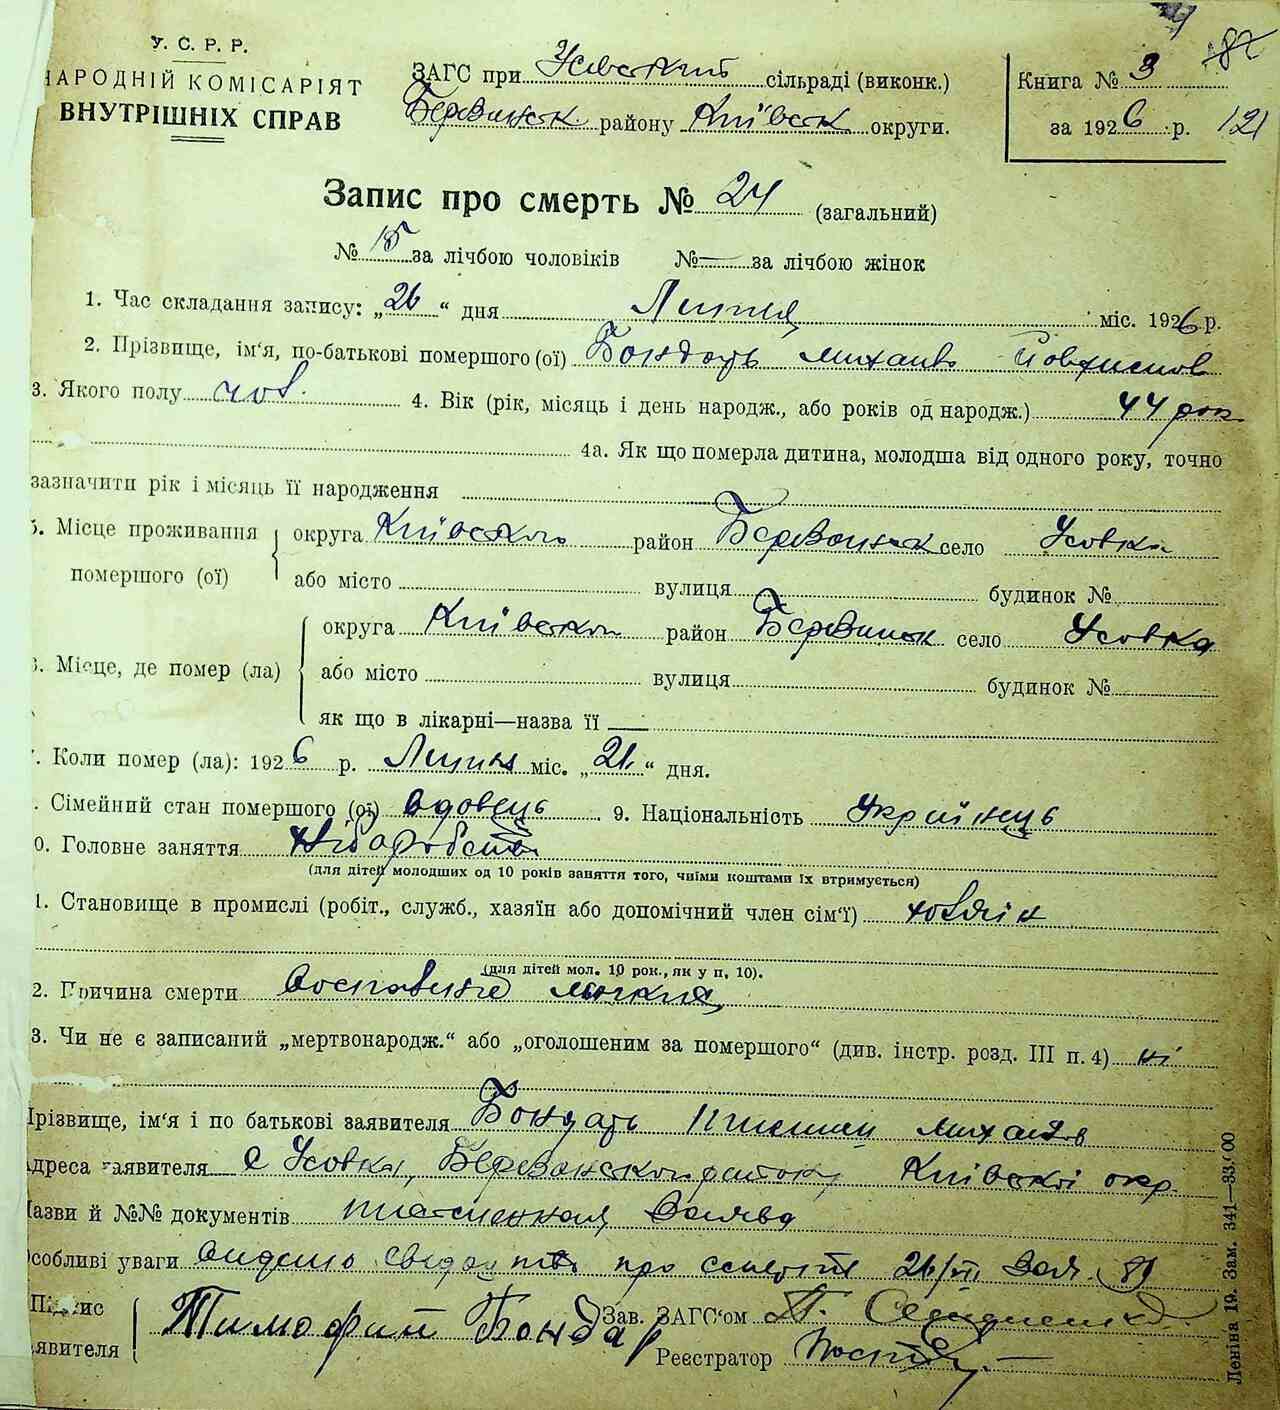 У. С. Р. Р.
НАРОДНІЙ КОМІСАРІЯТ
ВНУТРІШНІХ СПРАВ
ЗАГС при Усовский сільраді (виконк.)
Березанск. району Київск округи.
Книга № 3
за 1926 р.
82
121
Запис про смерть № 24 (загальний)
№ 15 за лічбою чоловіків № — за лічбою жінок
1. Час складання запису: „26“ дня Липня міс. 1926 р.
2. Прізвище, ім'я, по-батькові помершого (ої) Бондарь Михаил
3. Якого полу чов. 4. Вік (рік, місяць і день народж., або років од народж.) 44 рок
4а. Як що померла дитина, молодша від одного року, точно
зазначити рік і місяць її народження
5. Місце проживання помершого (ої) округа Київской район Березанск село Усовка
або місто вулиця будинок №
6. Місце, де помер (ла) округа Київской район Березанск село Усовка
або місто вулиця будинок №
як що в лікарні—назва її —
7. Коли помер (ла): 1926 р. Липня міс. „21“ дня.
. Сімейний стан помершого (ої) вдовець 9. Національність Українець
0. Головне заняття хліборобство
(для дітей молодших од 10 років заняття того, чиїми коштами їх втримується)
1. Становище в промислі (робіт., служб., хазяїн або допомічний член сім'ї) хозяїн
(для дітей мол. 10 рок., як у п. 10).
2. Причина смерти
3. Чи не є записаний „мертвонародж.“ або „оголошеним за помершого“ (див. інстр. розд. III п. 4) ні
Прізвище, ім'я і по батькові заявителя Бондарь Михайлов
Адреса заявителя с Усовка, Березанского району Київскої окр.
Назви й №№ документів заява
Особливі уваги видано про смерть 26/VII
Підпис заявителя Тимофий Бондар
Зав. ЗАГС'ом
Реєстратор
Леніна 19. Зам. 341—33.00